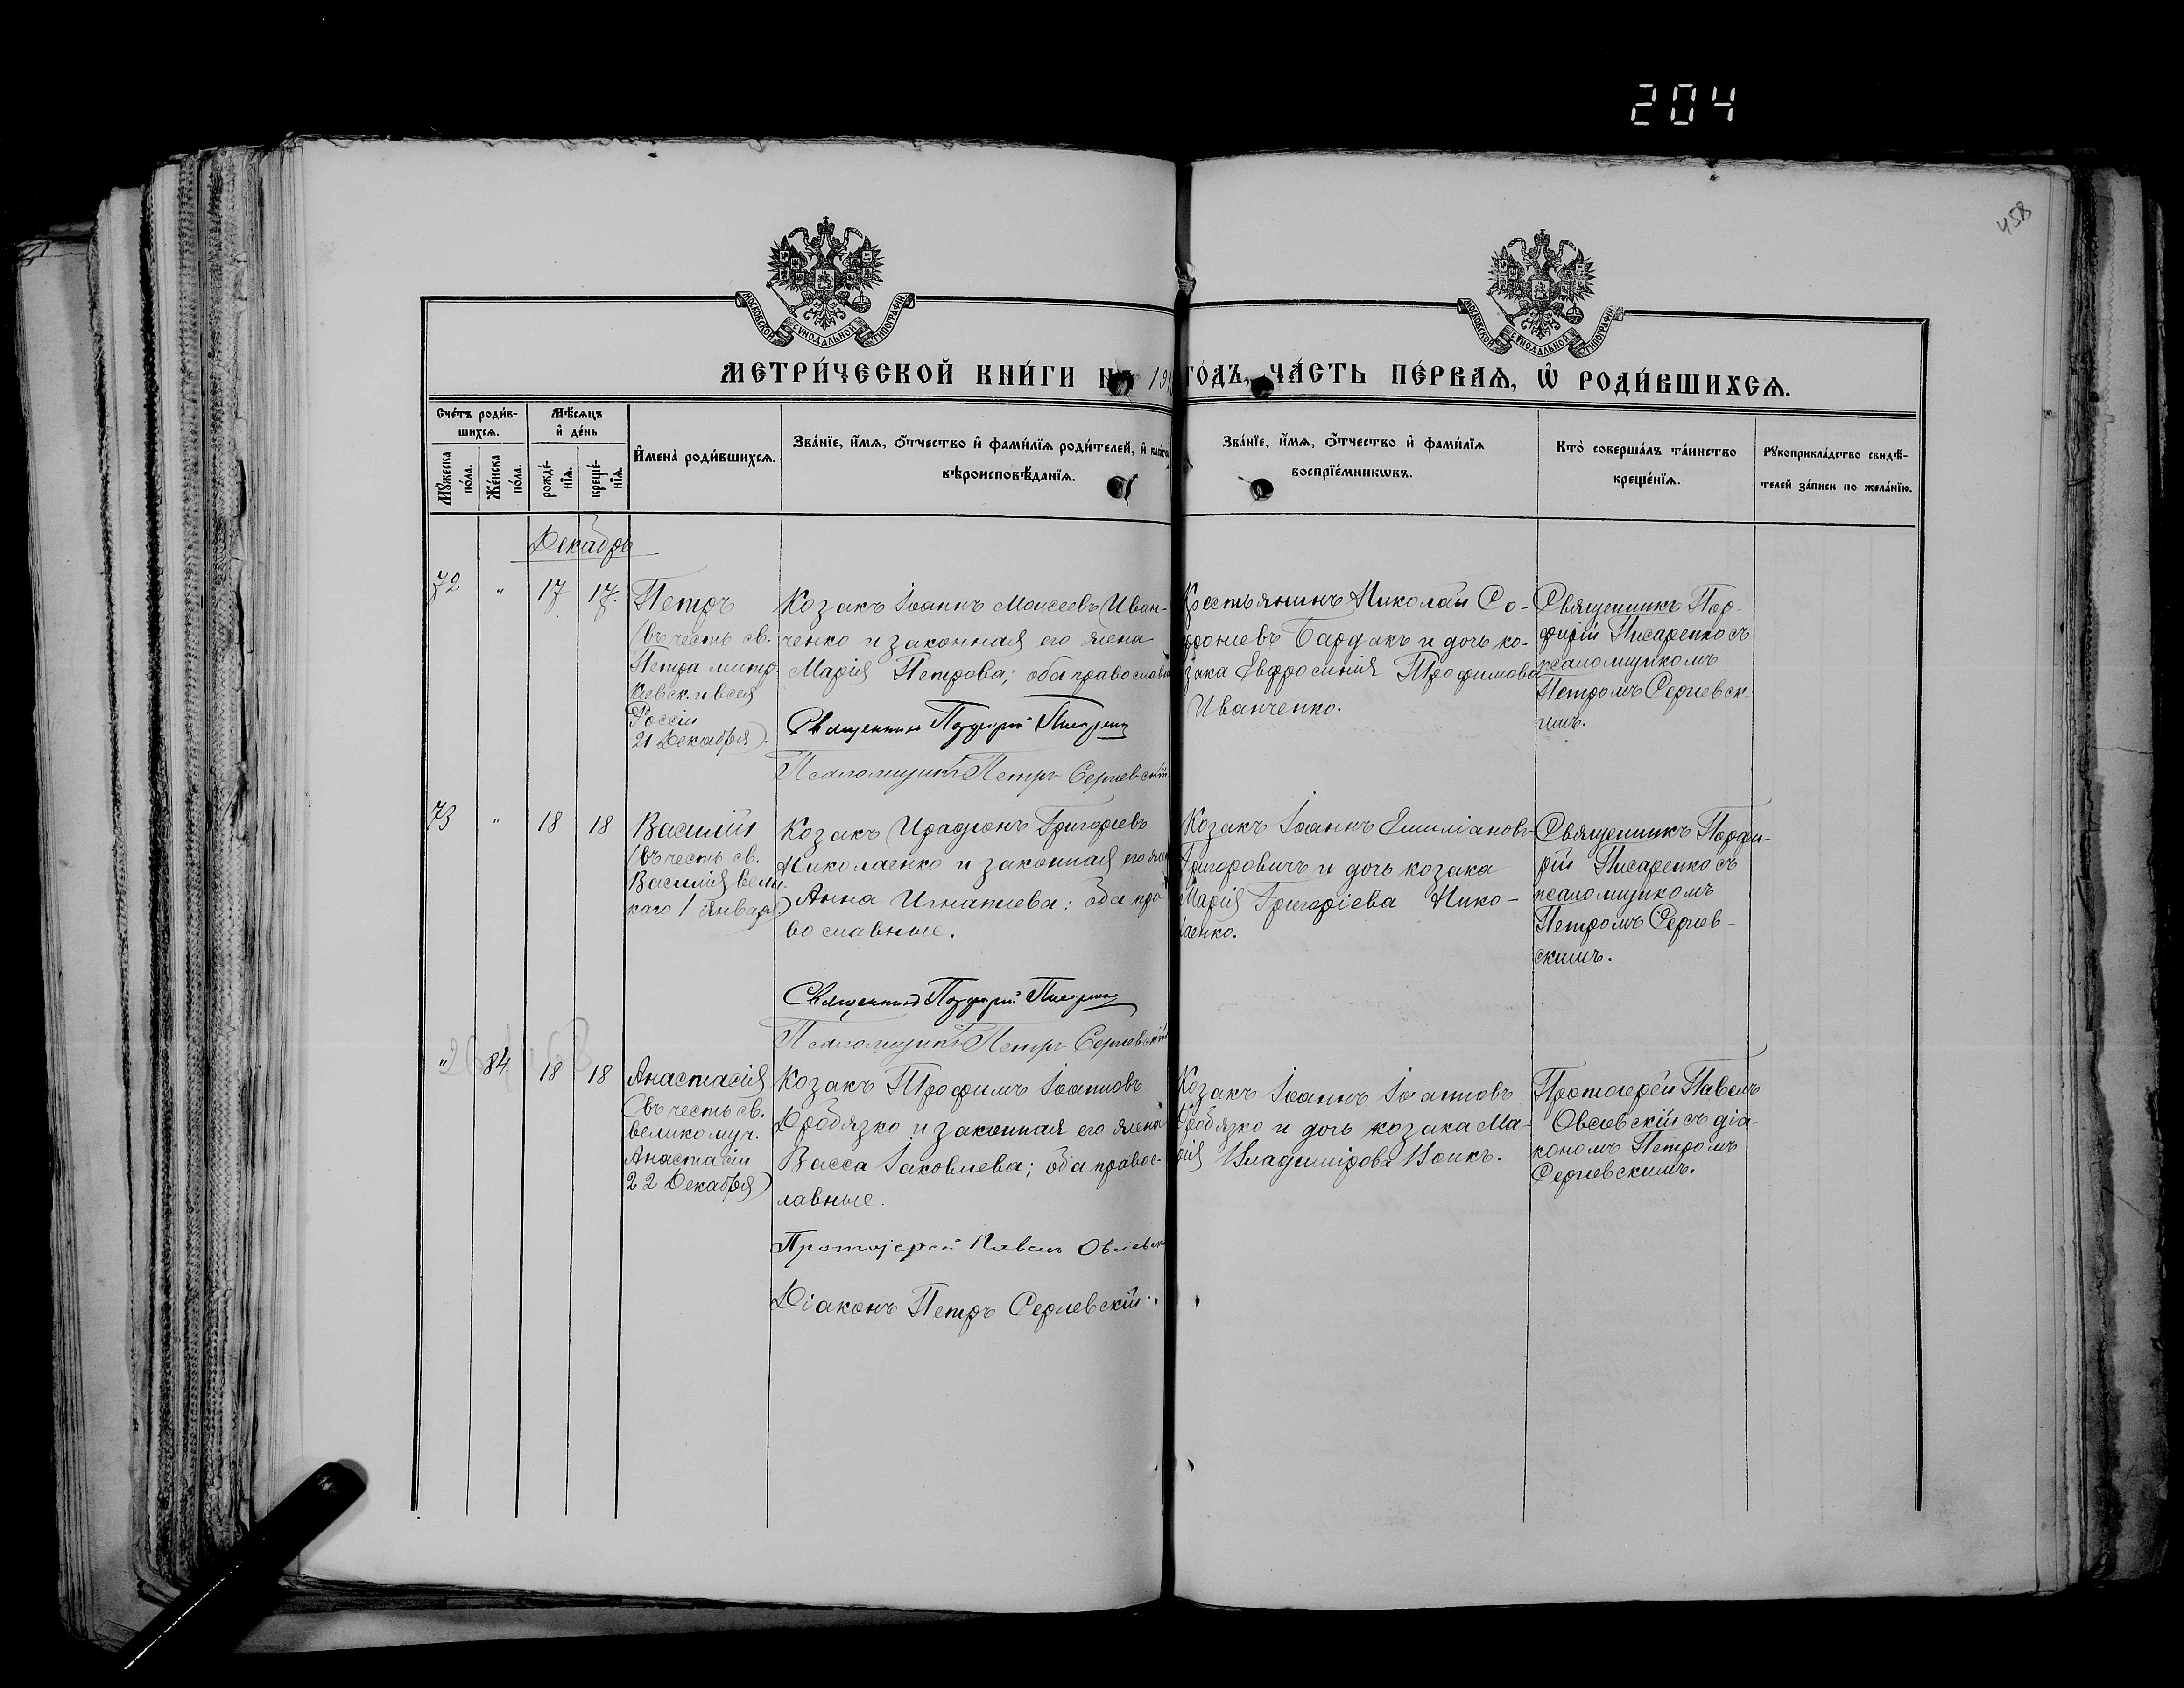 204
458
МОСКОВСКОЙ СУНОДАЛЬНОЙ ТИПОГРАФІИ
МОСКОВСКОЙ СУНОДАЛЬНОЙ ТИПОГРАФІИ
МЕТРИ́ЧЕСКОЙ КНИ́ГИ НА 19 ГОДЪ, ЧА́СТЬ ПЕ́РВАѦ, Ѡ РОДИ́ВШИХСѦ.
Сче́тъ роди́в-
шихсѧ.
Мѣ́сѧцъ
и де́нь
Мꙋ́жеска
по́ла.
Же́нска
по́ла.
рожде́-
нїѧ.
креще́-
нїѧ.
И҆мена̀ роди́вшихсѧ.
Зва́нїе, и҆́мѧ, ѻ҆́тчество и҆ фами́лїѧ роди́телей, и҆
вѣроисповѣ́данїѧ.
Зва́нїе, и҆́мѧ, ѻ҆́тчество и҆ фами́лїѧ
воспрїе́мникѡвъ.
Кто̀ соверша́лъ та́инство
креще́нїѧ.
Рꙋкоприкла́дство свидѣ́-
телей за́писи по жела́нїю.
Декабрь
72 " 17 17.
Петръ
(въ честь св.
Петра митр.
Кіевск. и всея
Россіи
21 Декабря).
Козакъ Іоаннъ Моисеевъ Иван-
ченко и законная его жена
Марія Петрова; оба православн
Священникъ Порфирій Писаренко
Псаломщикъ Петръ Сергіевскій
Крестьянинъ Николай Со-
фроніевъ Бардакъ и дочь ко-
зака Евфросинія Трофимова
Иванченко.
Священникъ Пор-
фирій Писаренко съ
псаломщикомъ
Петромъ Сергіевск-
имъ.
73 " 18 18
Василій
(въ честь св.
Василія вели-
каго 1 Января)
Козакъ Иродіонъ Григорьевъ
Николаенко и законная его жен
Анна Игнатіева: оба пра
вославные.
Священникъ Порфирій Писаренко
Псаломщикъ Петръ Сергіевскій
Козакъ Іоаннъ Емиліановъ
Григоровичъ и дочь козака
Марія Григоріева Нико-
лаенко.
Священникъ Порфи-
рій Писаренко съ
псаломщикомъ
Петромъ Сергіев-
скимъ.
" 84. 18 18
Анастасія
(въ честь св.
великомуч.
Анастасіи
22 Декабря)
Козакъ Трофимъ Іоанновъ
Дробязко и законная его жена
Васса Іаковлева; оба правос-
лавные.
Протоіерей Павелъ Овсіевск
Діаконъ Петръ Сергіевскій.
Козакъ Іоаннъ Іоанновъ
Дробязко и дочь козака Ма-
рія Владимірова Воикъ.
Протоіерей Павелъ
Овсіевскій съ діа-
кономъ Петромъ
Сергіевскимъ.